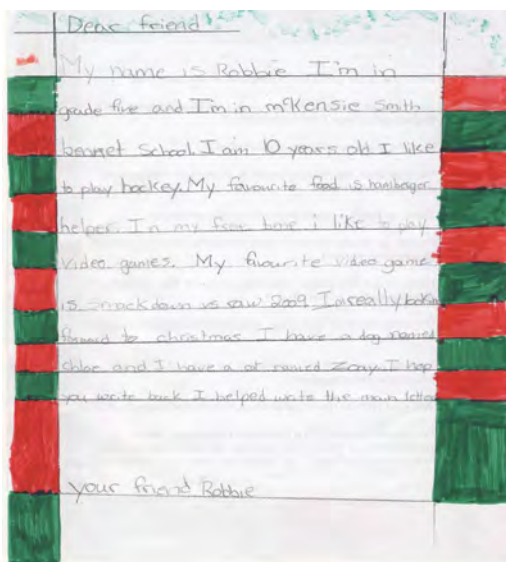 Dear friend
My name is Robbie I'm in
grade five and I'm in mcKensie Smith
bennet School. I am 10 years old I like
to play hockey. My favourite food is hamberger
helper. In my free time i like to play
video games. My favourite video game
is smackdown vs raw 2009. I'm really looking
forward to christmas I have a dog named
chloe and I have a cat named I hop
you write back I helped write the main letter
your friend Robbie